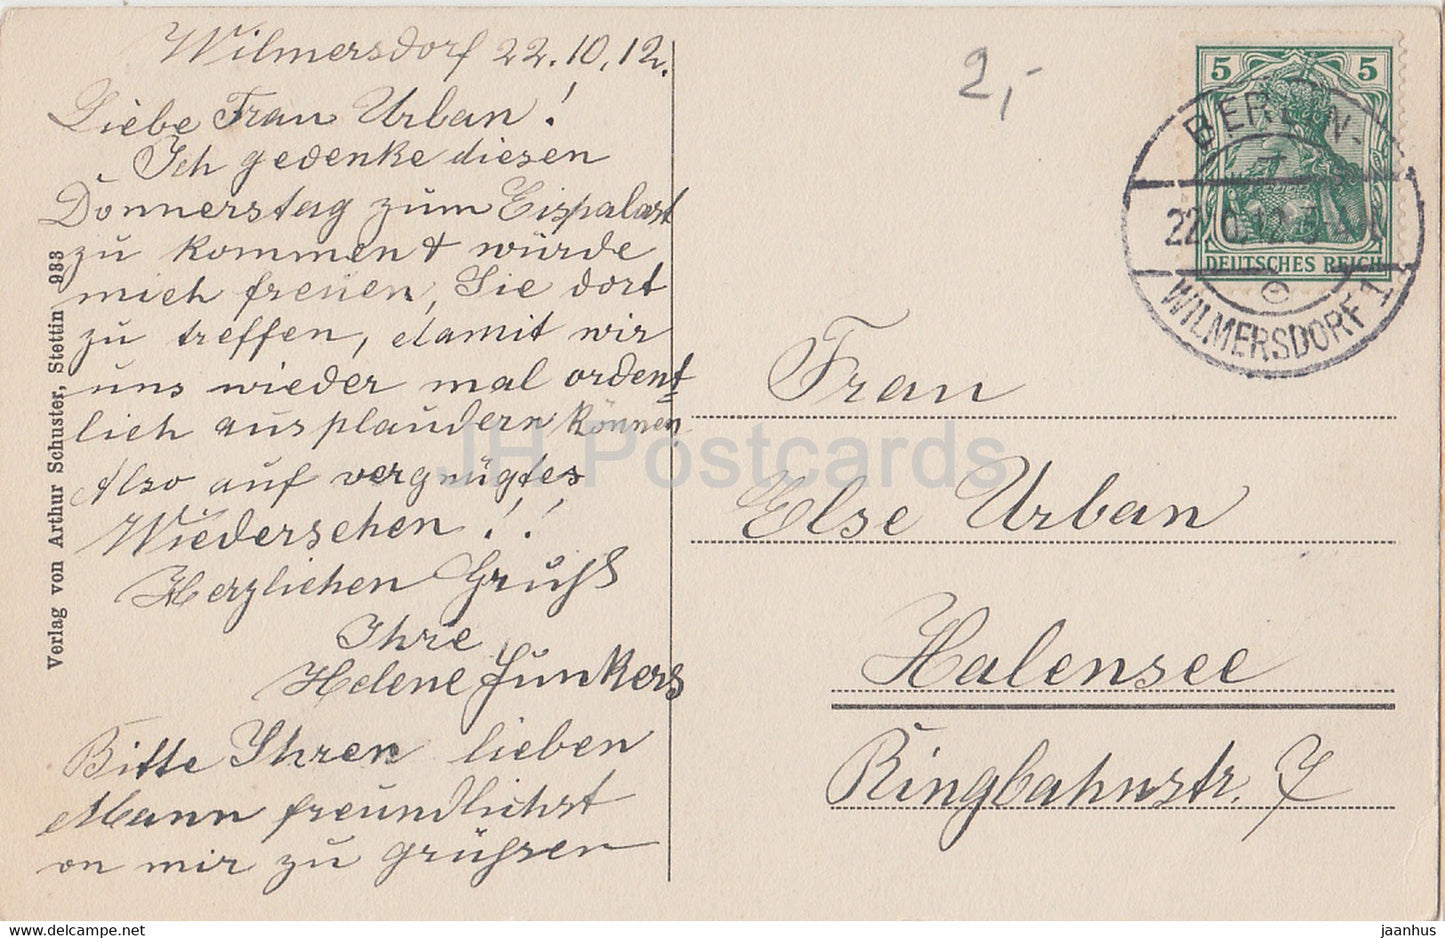 Wilmersdorf 22.10.12.
Liebe Frau Urban!
Ich gedenke diesen
Donnerstag zum Eispalast
zu kommen & würde
mich freuen, Sie dort
zu treffen, damit wir
uns wieder mal ordent-
lich ausplaudern können.
Also auf vergnügtes
Wiedersehen!!
Herzlichen Gruß
Ihre
Helene Junkers
Bitte Ihren lieben
Mann freundlichst
von mir zu grüßen
Verlag von Arthur Schuster, Stettin 933
2,-
5 5
DEUTSCHES REICH
BERLIN-
WILMERSDORF 1
Frau
Else Urban
Halensee
Ringbahnstr. 7
JH Postcards
www.delcampe.net
jaanhus